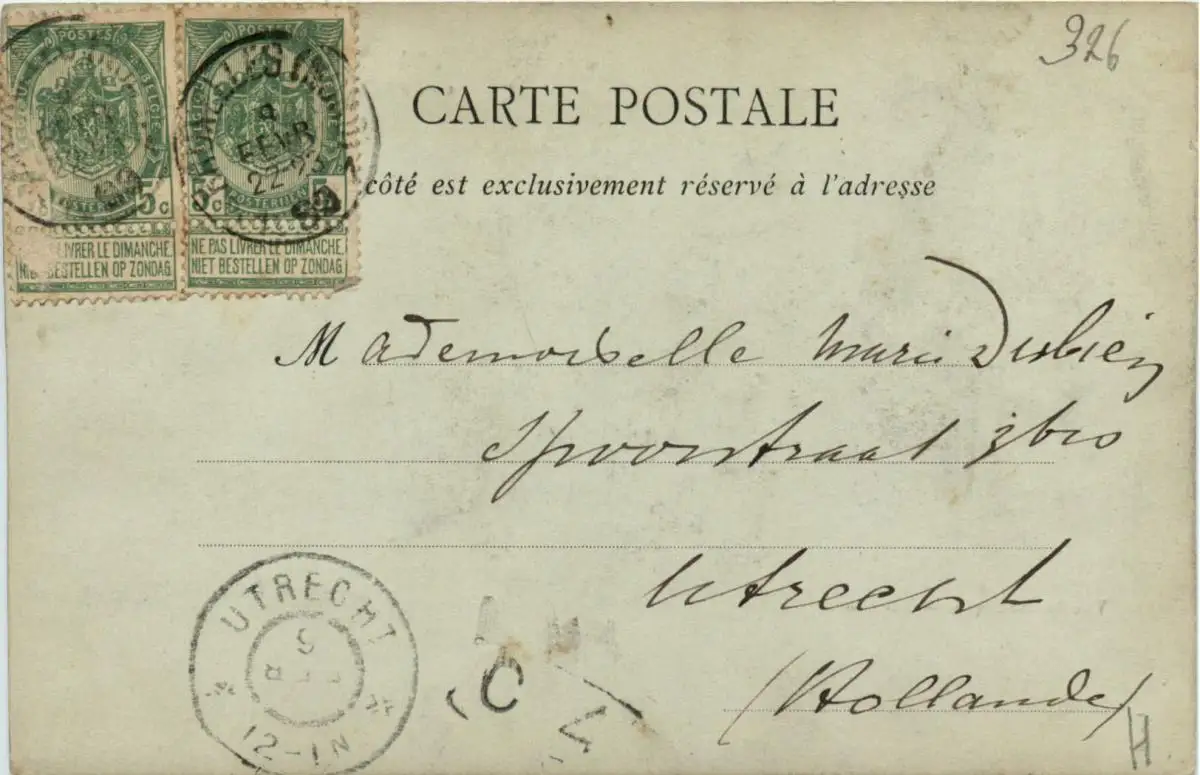 326
CARTE POSTALE
côté est exclusivement réservé à l'adresse
POSTES
5c
LIVRER LE DIMANCHE
BESTELLEN OP ZONDAG
POSTES
5c 5c
NE PAS LIVRER LE DIMANCHE
NIET BESTELLEN OP ZONDAG
Mademoiselle Marie
Spoorstraat 3 bis
Utrecht
(Hollande)
UTRECHT
12-1N
H